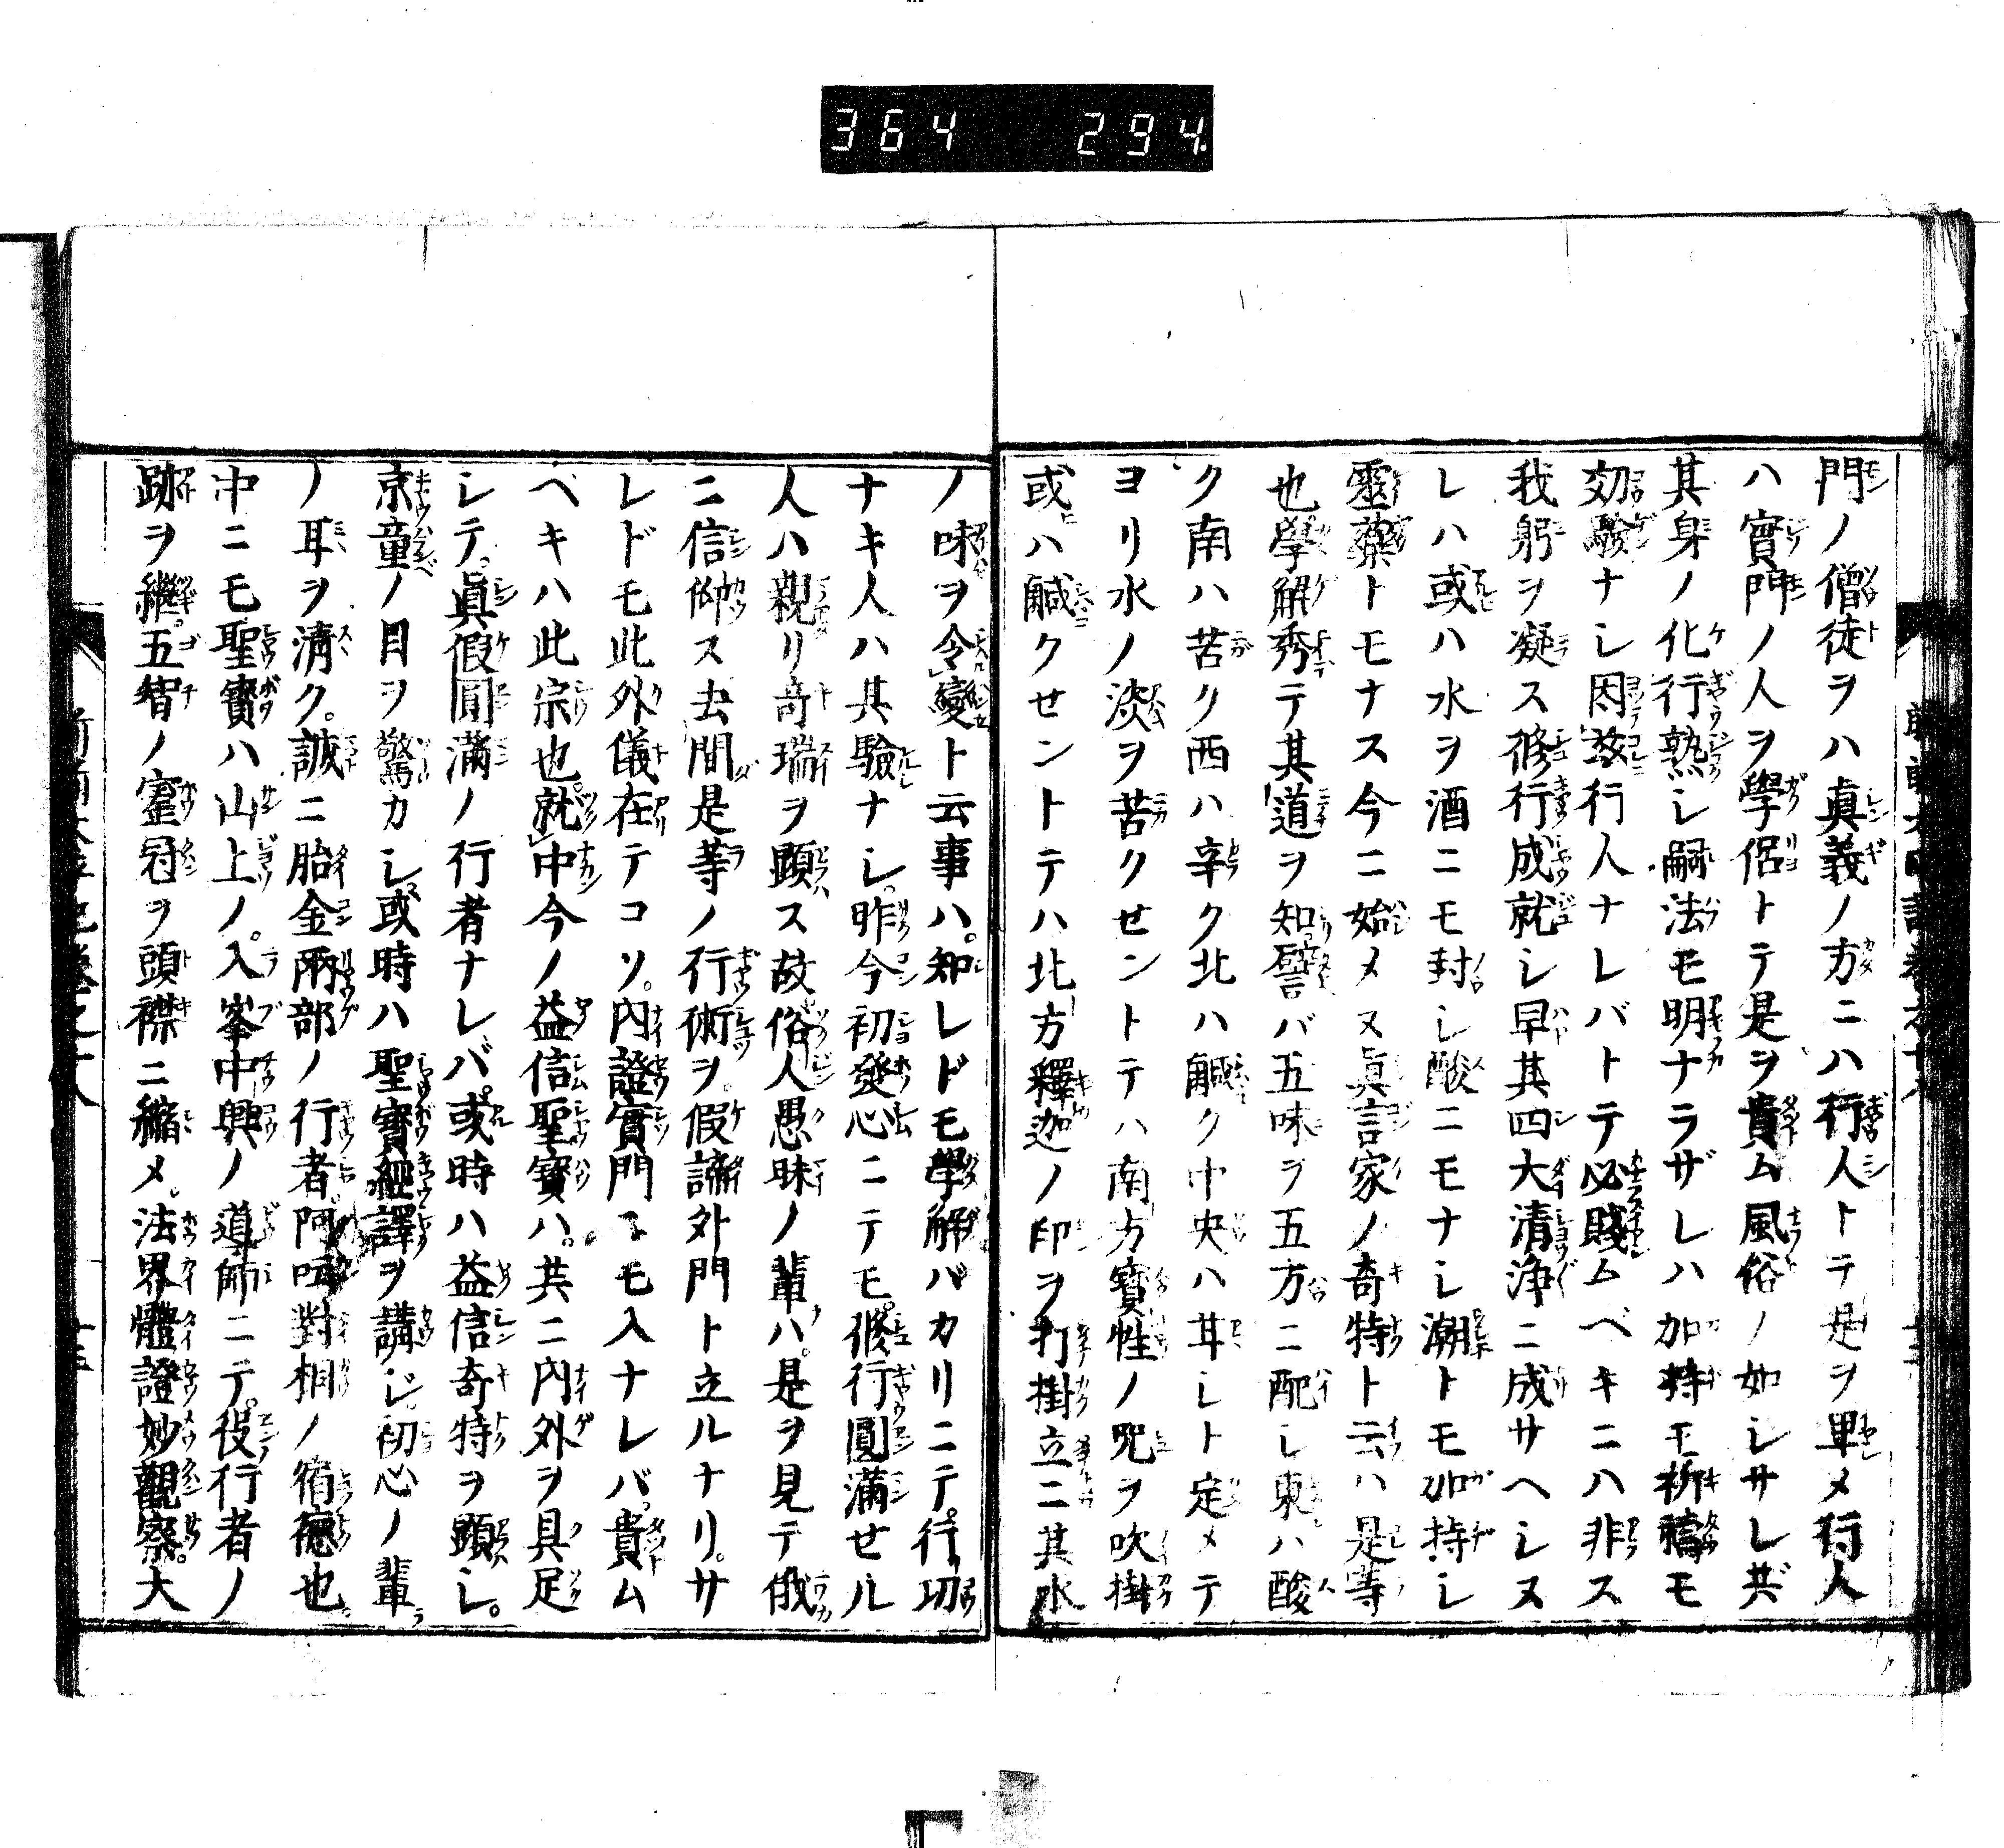 364 294.
門ノ僧徒ヲハ眞義ノ方ニハ行人トテ是ヲ卑メ行人
ハ實門ノ人ヲ學侶トテ是ヲ貴ム風俗ノ如シサレ共
其身ノ化行熟シ嗣法モ明ナラザレハ加持モ祈禱モ
効驗ナシ因茲行人ナレバトテ必賤ムベキニハ非ス
我躬ヲ凝ス修行成就シ早其四大清浄ニ成サヘシヌ
レハ或ハ水ヲ酒ニモ封シ酸ニモナシ潮トモ加持シ
靈藥トモナス今ニ始メヌ眞言家ノ奇特ト云ハ是等
也學解秀テ其道ヲ知譬バ五味ヲ五方ニ配シ東ハ酸
ク南ハ苦ク西ハ辛ク北ハ鹹ク中央ハ甘シト定メテ
ヨリ水ノ淡ヲ苦クセントテハ南方寳性ノ咒ヲ吹掛
或ハ鹹クセントテハ北方釋迦ノ印ヲ打掛立ニ其水
ノ味ヲ令變ト云事ハ。知レドモ學解バカリニテ。行功
ナキ人ハ其驗ナシ。昨今初發心ニテモ。修行圓滿セル
人ハ親リ奇瑞ヲ顕ス故俗人愚昧ノ輩ハ。是ヲ見テ俄
ニ信仰ス去間是等ノ行術ヲ。假諦外門ト立ルナリ。サ
レドモ此外儀在テコソ。内證實門ニモ入ナレバ。貴ム
ベキハ此宗也。就中今ノ益信聖寳ハ。共ニ内外ヲ具足
シテ。眞假圓滿ノ行者ナレバ。或時ハ益信奇特ヲ顕シ。
京童ノ目ヲ驚カシ。或時ハ聖寳經譯ヲ講ジ。初心ノ輩
ノ耳ヲ清ク。誠ニ胎金兩部ノ行者。阿吽對相ノ宿德也。
中ニモ聖寳ハ山上ノ。入峯中興ノ道師ニテ。役行者ノ
跡ヲ繼。五智ノ寳冠ヲ頭襟ニ縮メ。法界體證妙觀察。大